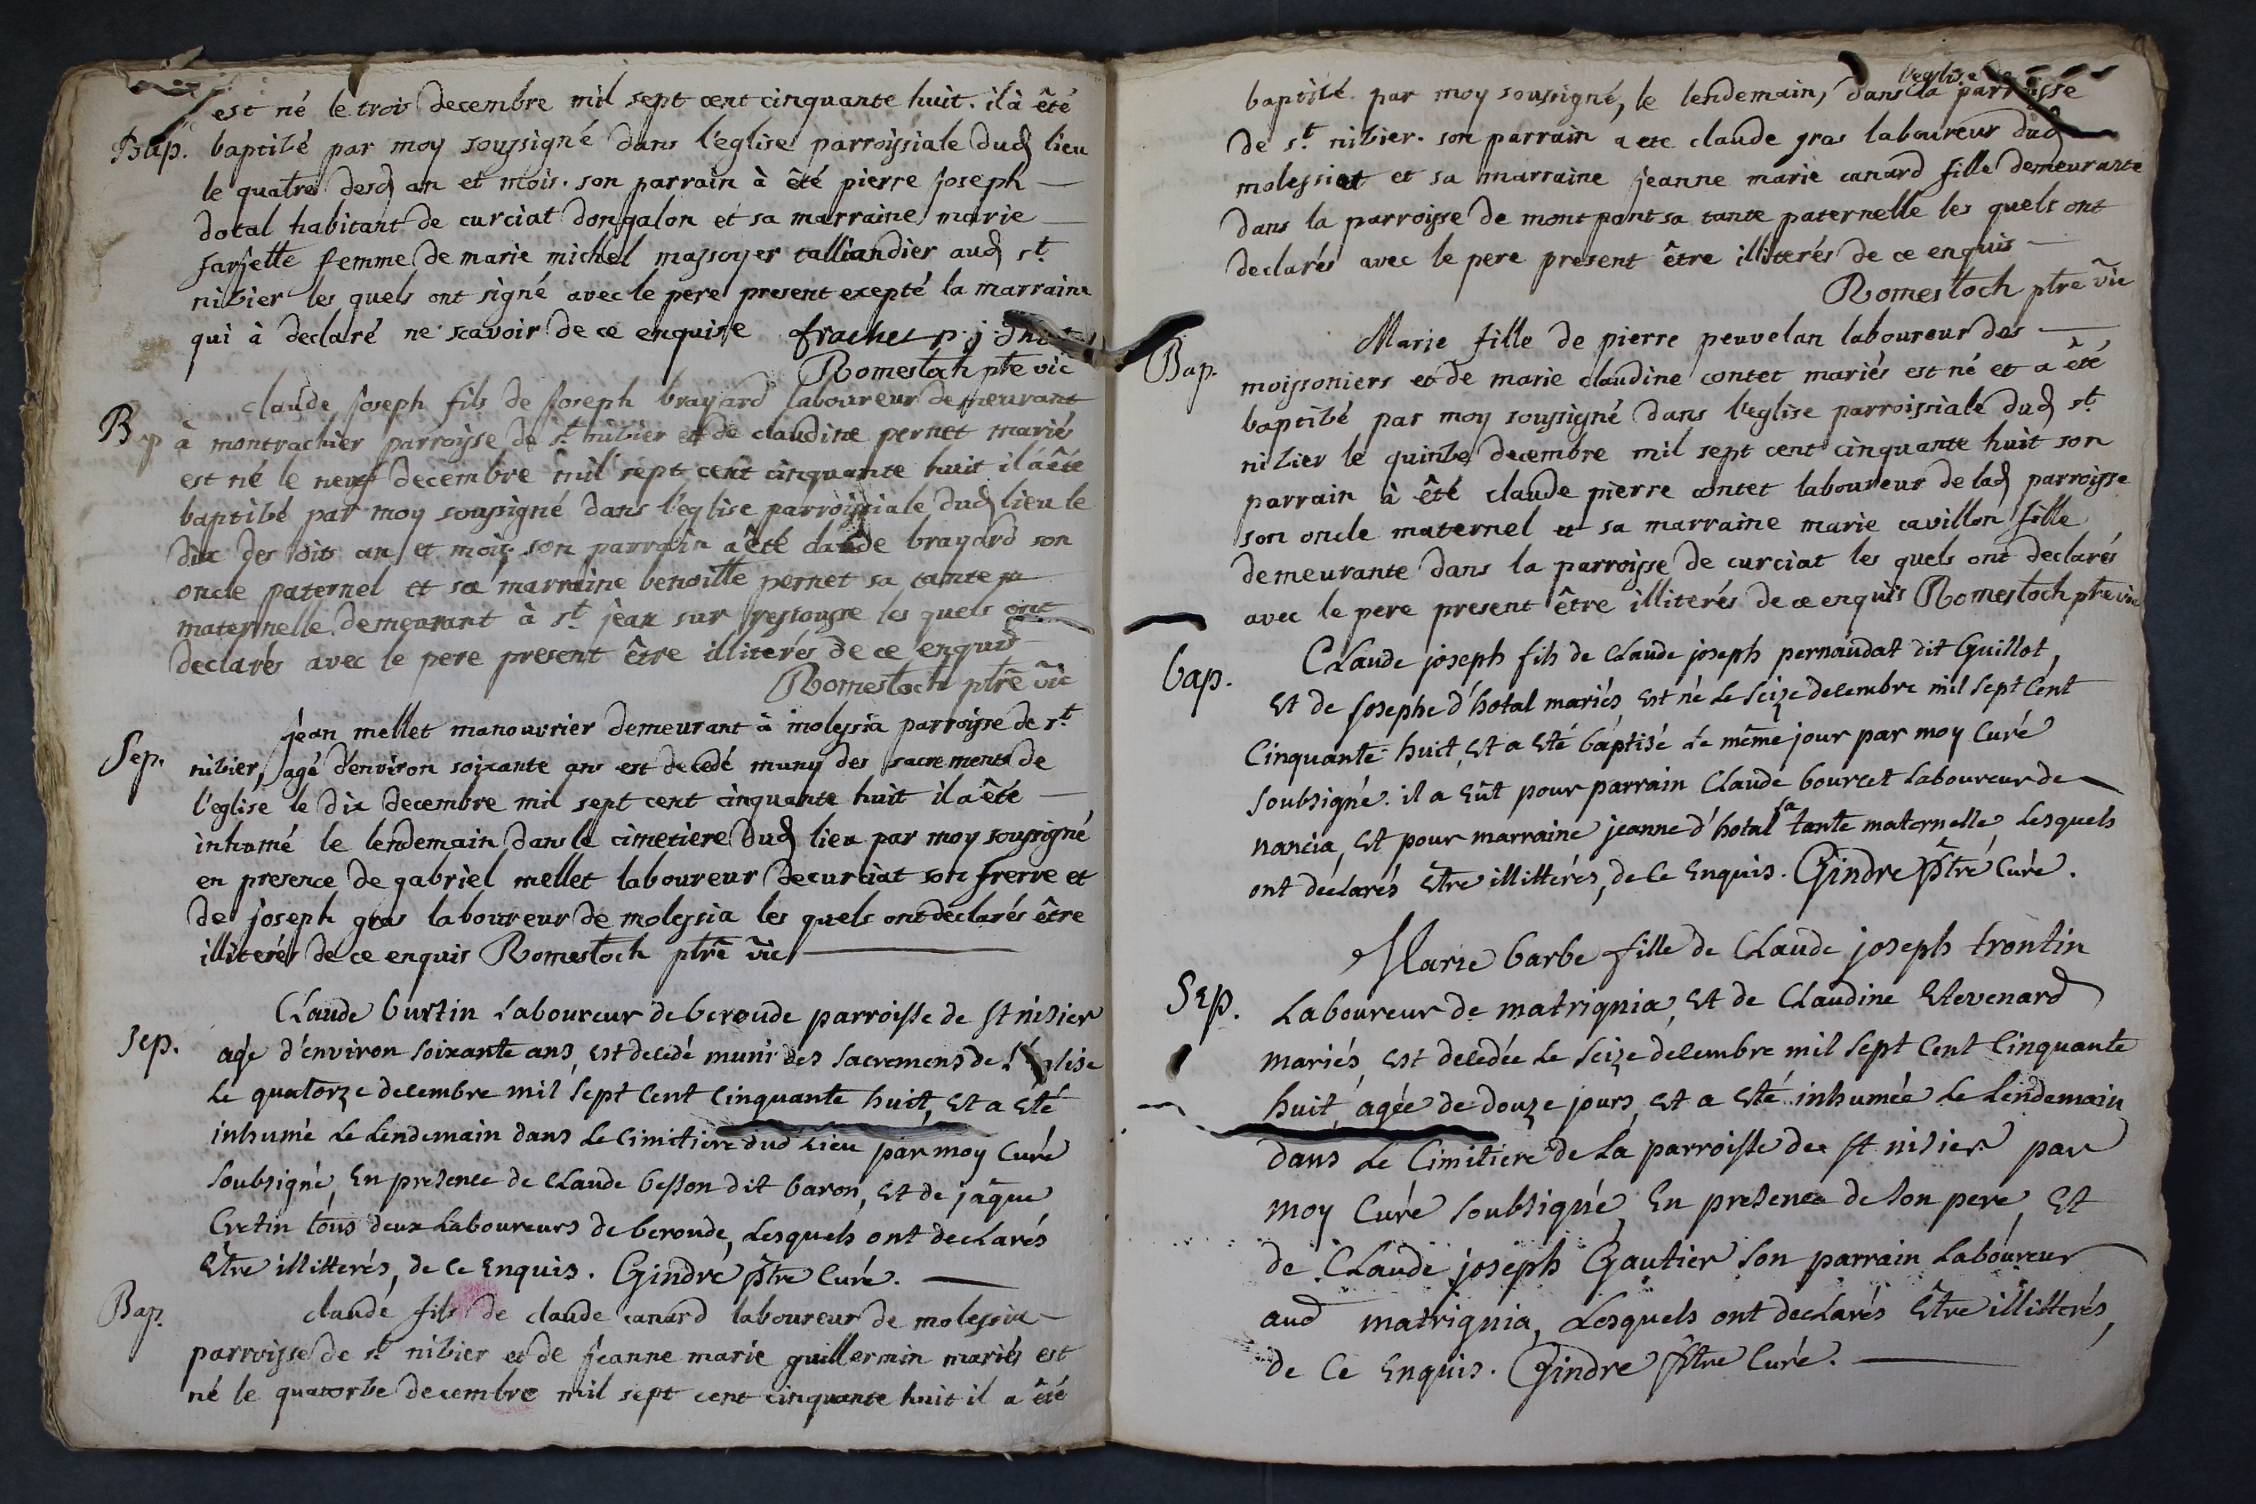 est né le trois decembre mil sept cent cinquante huit. il à êté
Bap. baptizé par moy soussigné dans l'eglise parroissiale dud lieu
le quatre desd an et mois. son parrain à êté pierre joseph —
dotal habitant de curciat dongalon et sa marraine marie —
farjette femme de marie michel massoyer talliandier aud st
nizier les quels ont signé avec le pere present exepté la marraine
qui à declaré ne scavoir de ce enquise frachet p. j
Romestoch ptre vic
claude joseph fils de joseph brayard laboureur demeurant
Bap à montrachier parroisse de st nizier et de claudine pernet mariés
est né le neuf decembre mil sept cent cinquante huit il à êté
baptizé par moy soussigné dans l'eglise parroissiale dud lieu le
dix des dits an et mois. son parrain a êté claude brayard son
oncle paternel et sa marraine benoitte pernet sa tante
maternelle demeurant à st jean sur ressousse les quels ont
declarés avec le pere present être illiterés de ce enquis
Romestoch ptre vic
jean mellet manouvrier demeurant à molessia parroisse de st
Sep. nizier, agé d'environ soixante ans est decedé muny des sacrements de
l'eglise le dix decembre mil sept cent cinquante huit il a êté —
inhumé le lendemain dans le cimetiere dud lieu par moy soussigné
en presence de gabriel mellet laboureur de curciat son frerre et
de joseph gras laboureur de molessia les quels ont declarés être
illiterés de ce enquis Romestoch ptre vic
Claude burtin Laboureur de beroude parroisse de St nisier
Sep. agé d'environ soixante ans, est decedé muni des sacremens de L'Eglise
Le quatorze decembre mil sept Cent Cinquante huit, Et a Eté
inhumé Le Lendemain dans Le Cimitiere dud Lieu par moy Curé
soubsigné, En presence de Claude besson dit baron, Et de jaque
Cretin tous deux Laboureurs de beroude, Lesquels ont declarés
Etre illitterés, de Ce Enquis. Gindre Ptre Curé. —
Bap. claude fils de claude canard laboureur de molessia —
parroisse de st nizier et de jeanne marie guillermin mariés est
né le quatorze decembre mil sept cent cinquante huit il a êté
l'eglise de
baptizé par moy soussigné, le lendemain, dans la parroisse
de st nizier. son parrain a ete claude gras laboureur dud
molessiat et sa marraine jeanne marie canard fille demeurante
dans la parroisse de montpont sa tante paternelle les quels ont
declarés avec le pere present être illiterés de ce enquis —
Romestoch ptre vic
Marie fille de pierre peuvelan laboureur des —
Bap. moissoniers et de marie claudine contet mariés est né et a êté
baptizé par moy soussigné dans l'eglise parroissiale dud st
nizier le quinze decembre mil sept cent cinquante huit son
parrain à êté claude pierre contet laboureur de lad parroisse
son oncle maternel et sa marraine marie cavillon fille
demeurante dans la parroisse de curciat les quels ont declarés
avec le pere present être illiterés de ce enquis Romestoch ptre vic
Claude joseph fils de Claude joseph pernaudat dit Guillot,
bap. Et de josephe d'hotal mariés Est né Le seize decembre mil sept Cent
Cinquante-huit, Et a Eté baptisé Le même jour par moy Curé
soubsigné. il a Eüt pour parrain Claude bourcet Laboureur de
nancia, Et pour marraine jeanne d'hotal sa tante maternelle, Lesquels
ont declarés Etre illitterés, de Ce Enquis. Gindre Ptre Curé.
Marie barbe fille de Claude joseph trontin
Sep. Laboureur de matrignia, Et de Claudine Etevenard
mariés, Est decedée Le seize decembre mil sept Cent Cinquante
huit, agée de douze jours, Et a Eté inhumée Le Lendemain
dans Le Cimitiere de La parroisse de St nisier par
moy Curé soubsigné, En presence de son pere, Et
de Claude joseph Gautier son parrain Laboureur
aud matrignia, Lesquels ont declarés Etre illitterés,
de Ce Enquis. Gindre Ptre Curé. —